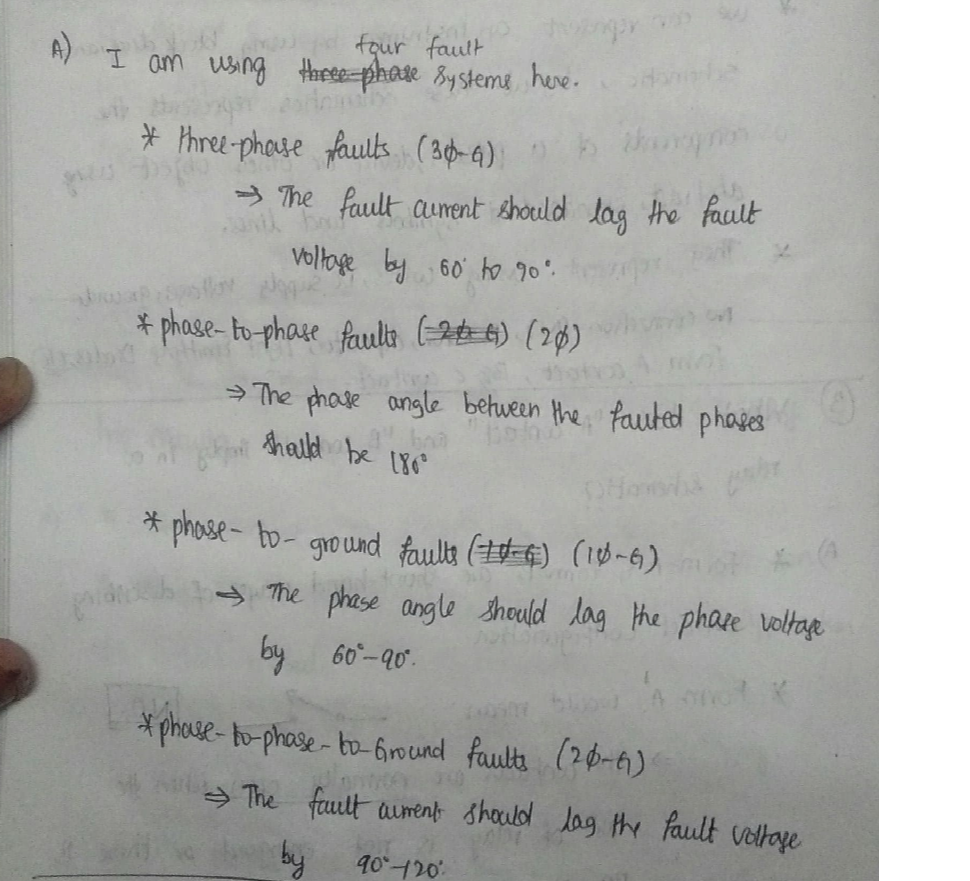 A) I am using four fault
three-phase systems here.
* three-phase faults (3ϕ-G)
⇒ The fault current should lag the fault
voltage by 60° to 90°.
* phase-to-phase faults (2ϕ-G) (2ϕ)
⇒ The phase angle between the fauted phases
should be 180°
* phase-to-ground faults (1ϕ-G) (1ϕ-G)
⇒ The phase angle should lag the phase voltage
by 60°-90°.
* phase-to-phase-to-Ground faults (2ϕ-G)
⇒ The fault current should lag the fault voltage
by 90°-120°.